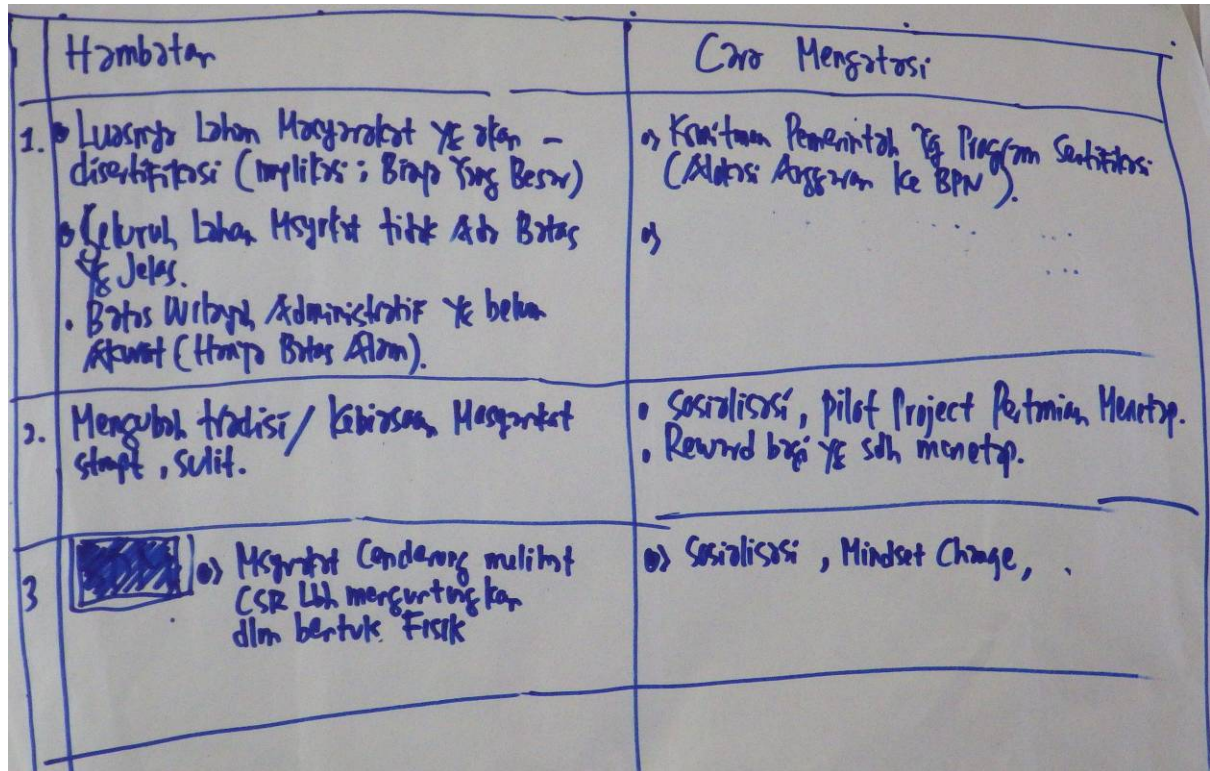 Hambatan
Cara Mengatasi
1.
Luasnya Lahan Masyarakat yg akan -
disertifikasi (implikasi ; Biaya Yang Besar)
Seluruh Lahan Msyrkt tidak Ada Batas
Yg Jelas.
Batas Wilayah Administratif Yg belum
Akurat (Hanya Batas Alam).
Komitmen Pemerintah Tg Program Sertifikasi
(Alokasi Anggaran Ke BPN).
2.
Mengubah tradisi / Kebiasaan Masyarakat
, sulit.
Sosialisasi, pilot Project Pertanian Menetap.
Reward bagi Yg sdh menetap.
3
Msyrkt Cenderung melihat
CSR Lbh menguntungkan
dlm bentuk Fisik
Sosialisasi, Mindset Change,